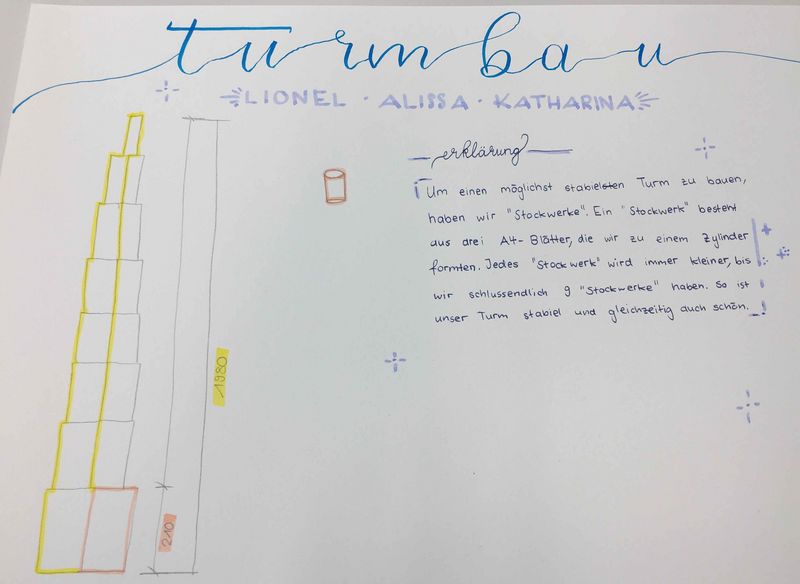 turmbau
LIONEL · ALISSA · KATHARINA
erklärung
Um einen möglichst stabielsten Turm zu bauen,
haben wir "Stockwerke". Ein "Stockwerk" besteht
aus drei A4-Blätter, die wir zu einem Zylinder
formten. Jedes "Stockwerk" wird immer kleiner, bis
wir schlussendlich 9 "Stockwerke" haben. So ist
unser Turm stabiel und gleichzeitig auch schön.
1980
210